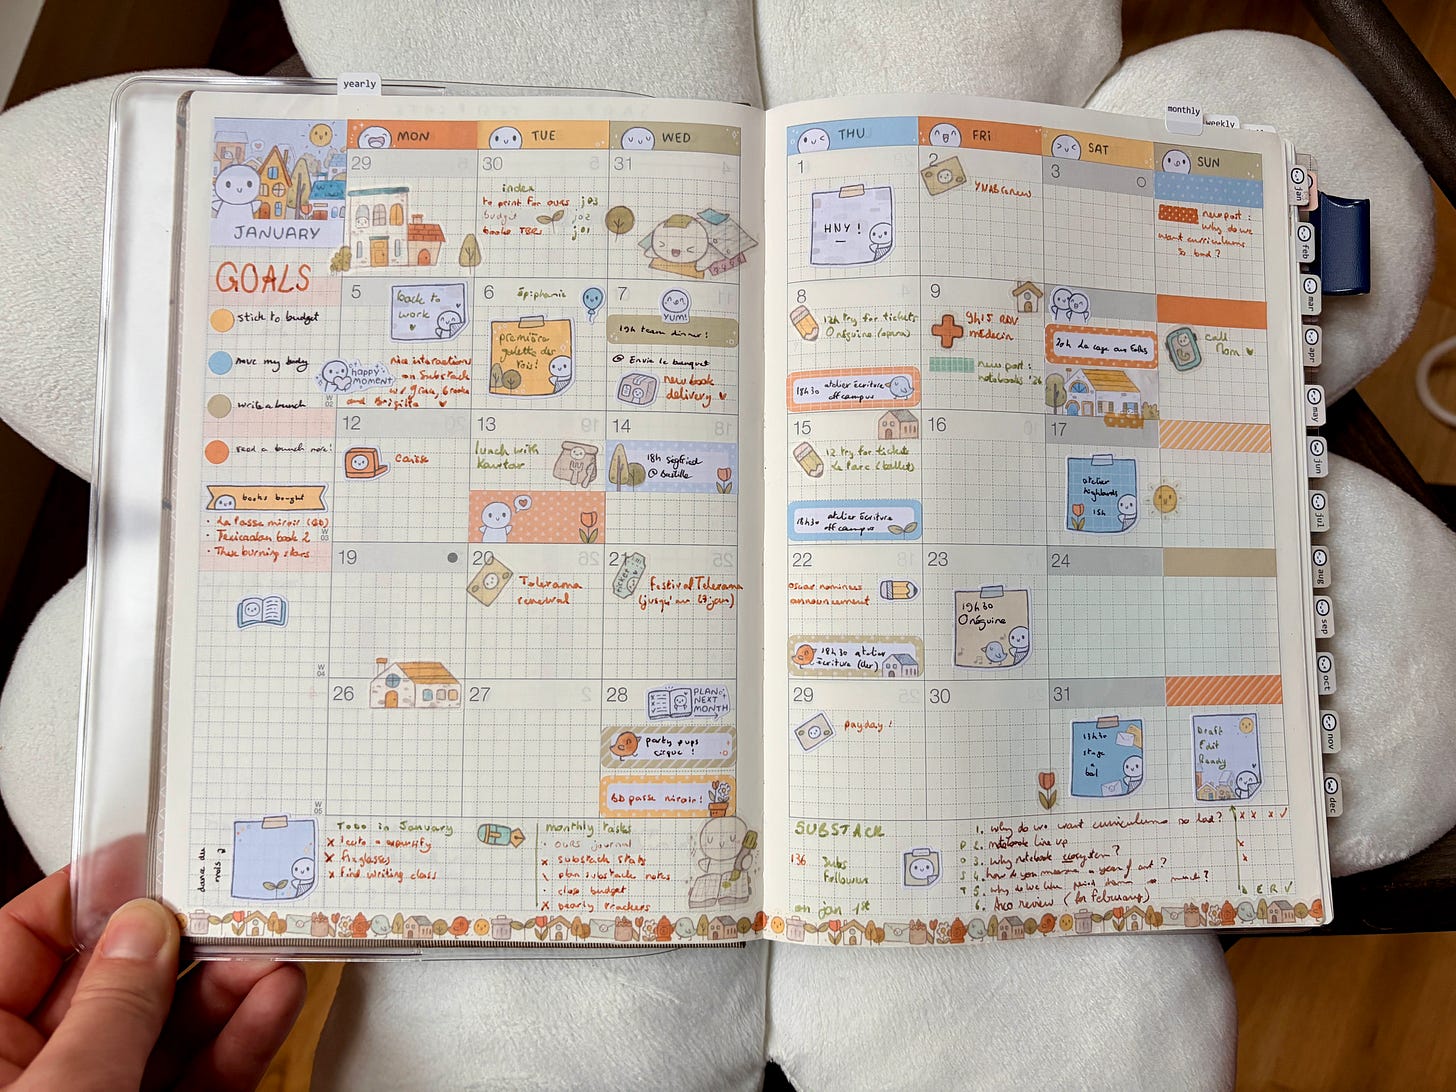 yearly
monthly
weekly
MON
TUE
WED
THU
FRI
SAT
SUN
JANUARY
GOALS
stick to budget
move my body
write a bunch
read a bunch more!
books bought
• La Passe miroir (BD)
• Tericadian book 2
• These burning stars
29
30
index
to print for ours j03
budget j02
books TBR j01
31
1
HNY!
2
YNAB renew
3
new post:
why do we
want curriculums
so bad?
W
02
5
back to
work
HAPPY
MOMENT
nice interactions
on Substack
w/ Grace, Brooke
and Brigitte
6
Epiphanie
première
galette des
rois!
7
YUM!
19h team dinner!
@ Envie le banquet
new book
delivery
8
12h try for tickets
Onéguine (opera)
18h30 atelier écriture
off campus
9
9h15 RDV
médecin
new post:
notebooks '26
20h La cage aux folles
call
Mom
W
03
12
Carise
13
lunch with
Kawtar
14
18h Siegfried
@ Bastille
15
12 try for tickets
Le Parc (ballet)
18h30 atelier écriture
off campus
16
17
atelier
highlands
15h
W
04
19
20
Telerama
renewal
21
TICKET
Festival Telerama
(jusqu'au 27 jan)
22
Oscar nominees
announcement
18h30 atelier
écriture (der)
23
19h30
Onéguine
24
W
05
26
27
28
PLAN
NEXT
MONTH
party pups
cirque!
bd passe miroir!
29
payday!
30
31
13h30
stage
bal
Draft
Edit
Ready
danse du
mois
Todo in January
x fix glasses
x find writing class
monthly tasks
• OURS journal
x substack stats
\ plan substack notes
• close budget
x yearly trackers
SUBSTACK
136
Subs
Followers
on jan 1st
POSTS
1. why do we want curriculums so bad? x x x ✓
2. notebook line up x
3. why notebook ecosystem? x
4. how do you measure a year of art?
5. why do we like so much?
6. Arco review (for February)
D E R ✓
jan
feb
mar
apr
may
jun
jul
aug
sep
oct
nov
dec